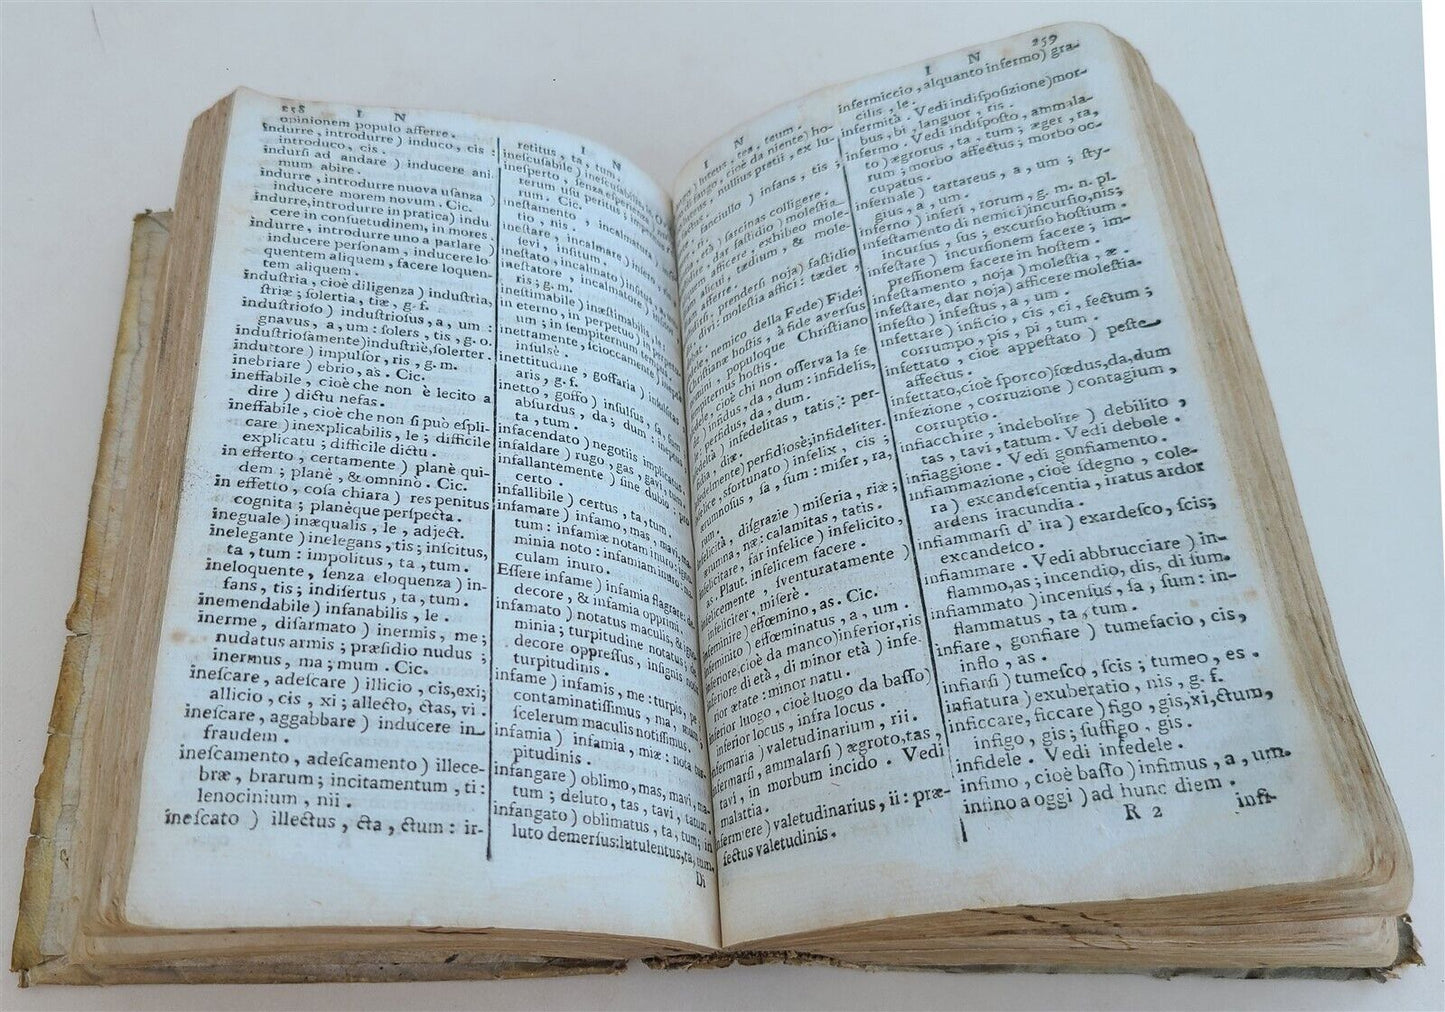 258 I N
opinionem populo afferre.
indurre, introdurre) induco, cis:
introduco, cis.
indursi ad andare) inducere ani
mum abire.
indurre, introdurre nuova usanza)
inducere morem novum. Cic.
indurre, introdurre in pratica) indu
cere in consuetudinem, in mores.
indurre, introdurre uno a parlare)
inducere personam, inducere lo
quentem aliquem, facere loquen-
tem aliquem.
induſtria, cioè diligenza) induſtria,
ſtriæ; ſolertia, tiæ, g. f.
induſtrioſo) induſtrioſus, a, um:
gnavus, a, um: ſolers, tis, g. o.
induſtrioſamente) induſtriè, ſolerter.
induttore) impulſor, ris, g. m.
inebriare) ebrio, as. Cic.
ineffabile, cioè che non è lecito a
dire) dictu nefas.
ineffabile, cioè che non ſi può eſpli-
care) inexplicabilis, le; difficile
explicatu; difficile dictu.
in efferto, certamente) planè qui-
dem; planè, & omnino. Cic.
in effetto, coſa chiara) res penitus
cognita; planèque perſpecta.
ineguale) inæqualis, le, adject.
inelegante) inelegans, tis; inſcitus,
ta, tum: impolitus, ta, tum.
ineloquente, ſenza eloquenza) in-
fans, tis; indiſertus, ta, tum.
inemendabile) inſanabilis, le.
inerme, diſarmato) inermis, me;
nudatus armis; præſidio nudus;
inermus, ma; mum. Cic.
ineſcare, adeſcare) illicio, cis, exi;
allicio, cis, xi; allecto, ctas, vi.
ineſcare, aggabbare) inducere in
fraudem.
ineſcamento, adeſcamento) illece-
bræ, brarum; incitamentum, ti:
lenocinium, nii.
ineſcato) illectus, cta, ctum: ir-
I N
retitus, ta, tum.
ineſcuſabile)
ineſperto, ſenza
rerum uſu
rum. Cic.
ineſtamento,
tio, nis.
ineſtare, incalmare)
ſevi, inſitum.
ineſtato, incalmato)
ineſtatore, incalmatore)
ris; g. m.
ineſtimabile) inæſtimabilis
in eterno, in perpetuo)
um; in ſempiternum
inettamente, ſcioccamente)
inſulsè.
inettitudine, goffaria)
aris, g. f.
inetto, goffo) inſulſus, ſa,
abſurdus, da; dum:
ta, tum.
infacendato) negotiis implicatus,
infaldare) rugo, gas, gavi,
infallantemente) ſine dubio:
certo.
infallibile) certus, ta, tum.
infamare) infamo, mas, mavi,
tum: infamiæ notam inuro:
minia noto: infamiam inuro:
culam inuro.
Eſſere infame) infamia flagrare: de
decore, & infamia opprimi.
infamato) notatus maculis, & igno
minia; turpitudine notatus;
decore oppreſſus, inſignis
turpitudinis.
infame) infamis, me: turpis, pe,
contaminatiſſimus, ma, mum
ſcelerum maculis notiſſimus,
infamia) infamia, miæ: nota tur
pitudinis.
infangare) oblimo, mas, mavi, ma-
tum; deluto, tas, tavi, tatum.
infangato) oblimatus, ta, tum; in
luto demerſus: lutulentus, ta, tum.
Di
I N
) luteus, tea, teum.
fango, cioè da niente) ho-
nullius pretii, ex lu-
fanciullo) infans, tis;
età) farcinas colligere.
dar faſtidio) moleſtia
afficere, exhibeo mole-
alicui, tædium, & mole-
afferre.
prenderſi noja) faſtidio
moleſtia affici: tædet,
nemico della Fede) Fidei
hoſtis, à fide averſus
populoque Chriſtiano
hoſtis.
cioè chi non oſſerva la fe
infidus, da, dum: infidelis,
perfidus, da, dum.
infedelitas, tatis: per-
diæ.
perfidiosè; infideliter.
sfortunato) infelix, cis;
erumnoſus, ſa, ſum: miſer, ra,
diſgrazie) miſeria, riæ;
næ: calamitas, tatis.
felicitare, far infelice) infelicito,
as. Plaut. infelicem facere.
felicemente, ſventuratamente)
infeliciter, miſerè.
infeminire) effœmino, as. Cic.
effœminatus, a, um.
inferiore, cioè da manco) inferior, ris
inferiore di età, di minor età) infe-
rior ætate: minor natu.
inferior luogo, cioè luogo da baſſo)
inferior locus, infra locus.
infermaria) valetudinarium, rii.
infermarſi, ammalarſi) ægroto, tas,
tavi, in morbum incido. Vedi
malattia.
infermiere) valetudinarius, ii: præ-
fectus valetudinis.
I N 259
infermiccio, alquanto infermo) gra-
cilis, le.
infermità. Vedi indiſpoſizione) mor-
bus, bi, languor, ris.
infermo. Vedi indiſpoſto, ammala-
to) ægrotus, ta, tum; æger, ra,
rum; morbo affectus; morbo oc-
cupatus.
infernale) tartareus, a, um; ſty-
gius, a, um.
inferno) inferi, rorum, g. m. n. pl.
infeſtamento di nemici) incurſio, nis;
incurſus, ſus; excurſio hoſtium.
infeſtare) incurſionem facere; im-
preſſionem facere in hoſtem.
infeſtamento, noja) moleſtia, æ.
infeſtare, dar noja) afficere moleſtia.
infeſto) infeſtus, a, um.
infettare) inficio, cis, ci, fectum;
corrumpo, pis, pi, tum.
infettato, cioè appeſtato) peſte
affectus.
infettato, cioè ſporco) fœdus, da, dum
infezione, corruzione) contagium,
corruptio.
infiacchire, indebolire) debilito,
tas, tavi, tatum. Vedi debole.
infiaggione. Vedi gonfiamento.
infiammazione, cioè ſdegno, cole-
ra) excandeſcentia, iratus ardor
ardens iracundia.
infiammarſi d' ira) exardeſco, ſcis;
excandeſco.
infiammare. Vedi abbrucciare) in-
flammo, as; incendio, dis, di ſum.
infiammato) incenſus, ſa, ſum: in-
flammatus, ta, tum.
infiare, gonfiare) tumefacio, cis,
inflo, as.
infiarſi) tumeſco, ſcis; tumeo, es.
infiatura) exuberatio, nis, g. f.
inficcare, ficcare) figo, gis, xi, ctum,
infigo, gis; ſuffigo, gis.
infidele. Vedi infedele.
infimo, cioè baſſo) infimus, a, um.
infino a oggi) ad hunc diem.
R 2 infi-